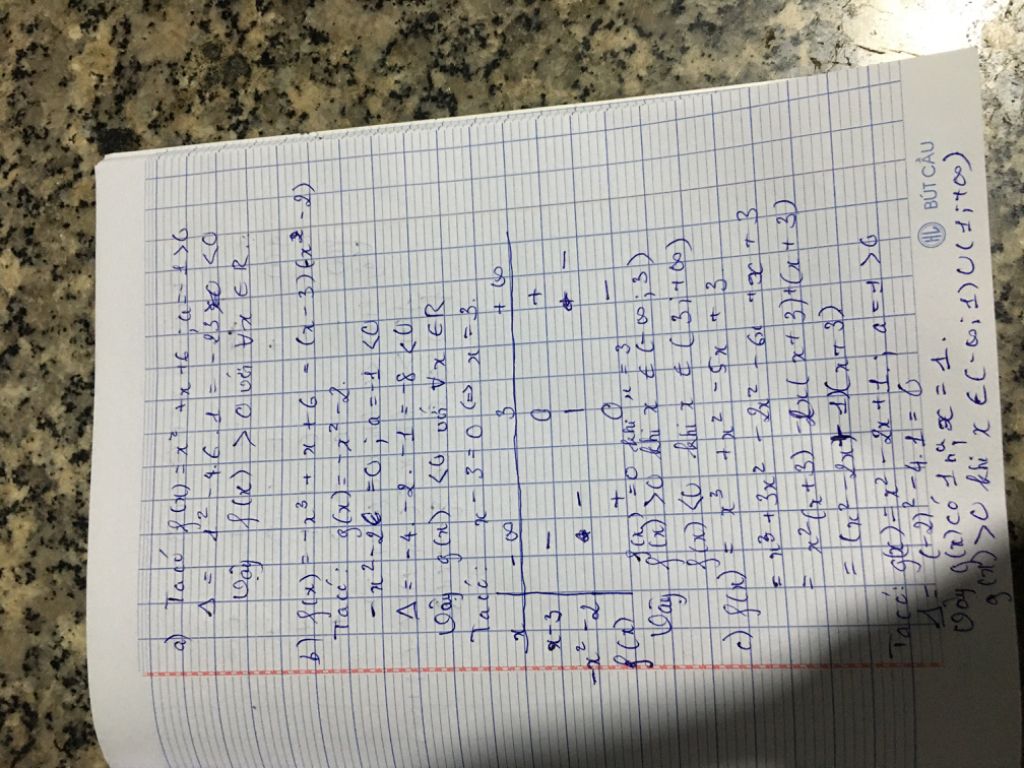 a) Ta có f(x) = x² + x + 6 ; a = 1 > 0
Δ = 1² - 4.6.1 = -23 < 0
Vậy f(x) > 0 với ∀x ∈ R.
b) f(x) = -x³ + x + 6 = (x - 3)(-x² - 2)
Ta có: g(x) = -x² - 2.
-x² - 2 = 0 ; a = -1 < 0
Δ = -4. -2. -1 = -8 < 0
Vậy g(x) < 0 với ∀x ∈ R
Ta có: x - 3 = 0 (=) x = 3.
x -∞ 3 +∞
x - 3 - 0 +
-x² - 2 - | -
f(x) + 0 -
Vậy f(x) = 0 khi x = 3
f(x) > 0 khi x ∈ (-∞; 3)
f(x) < 0 khi x ∈ (3; +∞)
c) f(x) = x³ + x² - 5x + 3
= x³ + 3x² - 2x² - 6x + x + 3
= x²(x+3) - 2x(x+3) + (x+3)
= (x² - 2x + 1)(x + 3)
Ta có: g(x) = x² - 2x + 1 ; a = 1 > 0
Δ = (-2)² - 4.1 = 0
Vậy g(x) có 1 no x = 1.
g(x) > 0 khi x ∈ (-∞; 1) ∪ (1; +∞)
BÚT CÂU